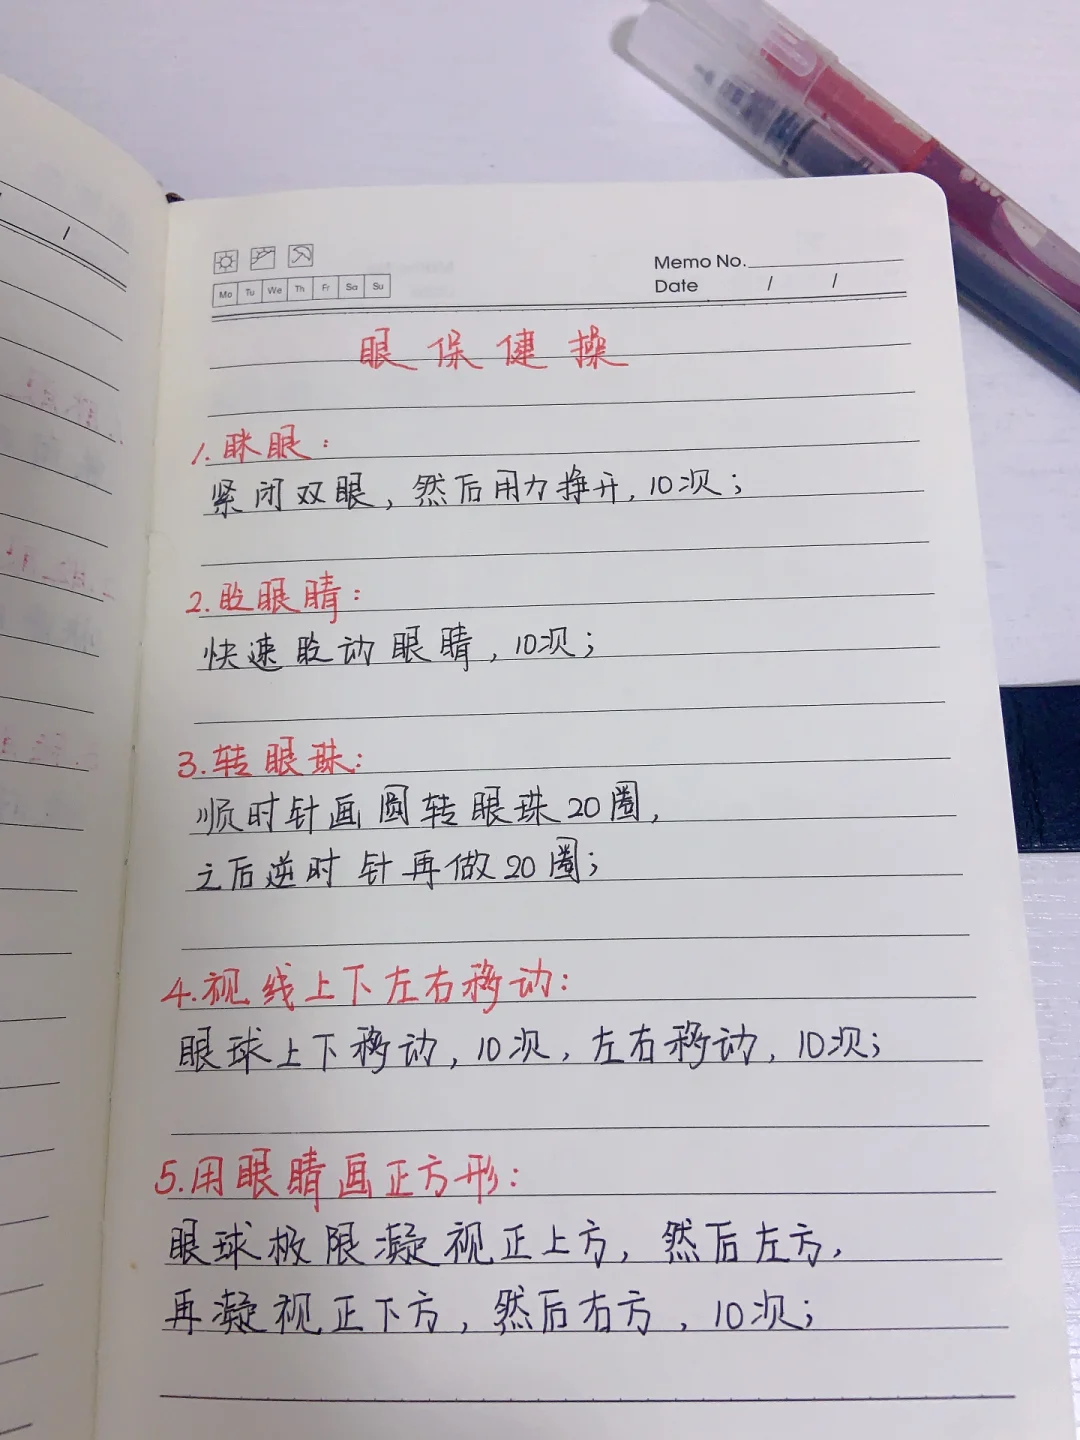 Memo No.
Mo Tu We Th Fr Sa Su
Date / /
眼保健操
1.眯眼：
紧闭双眼，然后用力挣开，10次；
2.眨眼睛：
快速眨动眼睛，10次；
3.转眼珠：
顺时针画圆转眼珠20圈，
之后逆时针再做20圈；
4.视线上下左右移动：
眼球上下移动，10次，左右移动，10次；
5.用眼睛画正方形：
眼球极限凝视正上方，然后左方，
再凝视正下方，然后右方，10次；